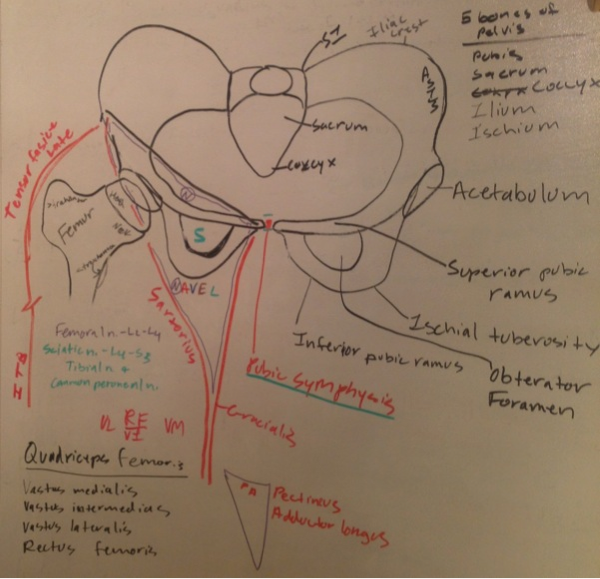 5 bones of
pelvis
Pubis
Sacrum
Coccyx
Ilium
Ischium
SI
Iliac
crest
ASIS
Sacrum
Coccyx
Acetabulum
Superior pubic
ramus
Ischial tuberosity
Inferior pubic ramus
Obterator
Foramen
Pubic symphysis
Tensor fascie
late
ITB
Femur
N
S
NAVEL
Sartorius
Gracialis
Femoral n. - L2-L4
Sciatic n. - L4-S3
Tibial n +
Common peroneal n.
VL RF VM
VI
Quadriceps femoris
Vastus medialis
Vastus intermedias
Vastus lateralis
Rectus femoris
Pectineus
Adductor longus